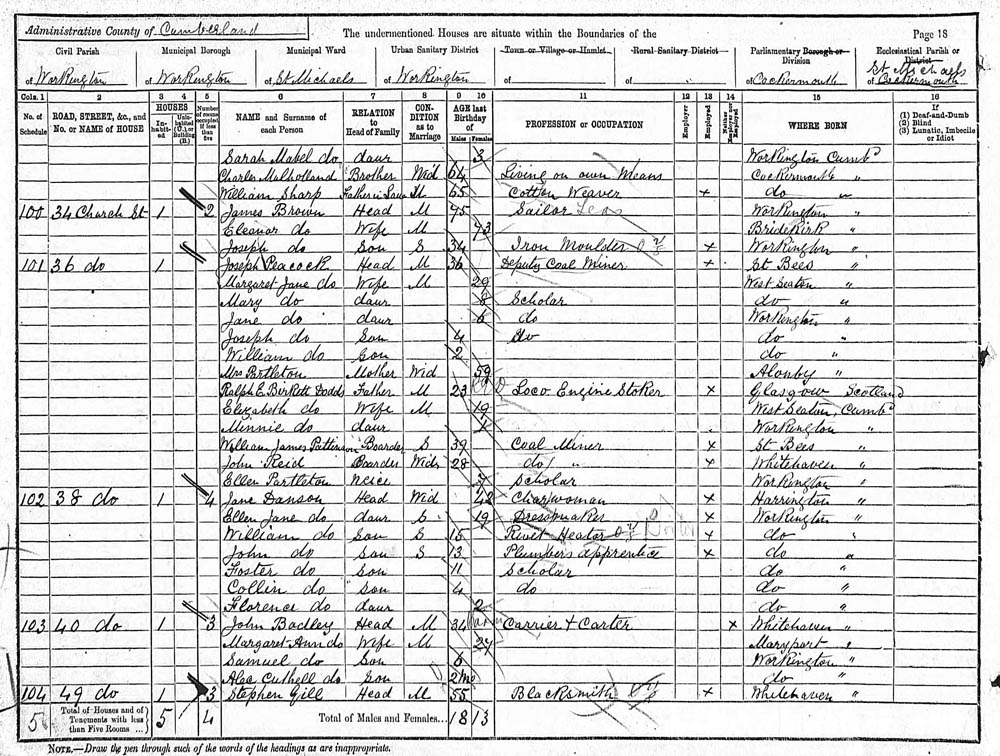 Administrative County of Cumberland The undermentioned Houses are situate within the Boundaries of the Page 18
Civil Parish Municipal Borough Municipal Ward Urban Sanitary District Town or Village or Hamlet Rural Sanitary District Parliamentary Borough or Division Ecclesiastical Parish or District
of Workington of Workington of St Michaels of Workington of of of Cockermouth of St Michaels Cockermouth
Cols. 1 2 3 4 5 6 7 8 9 10 11 12 13 14 15 16
No. of Schedule ROAD, STREET, &c., and No. or NAME of HOUSE HOUSES Inhabited Uninhabited (U.) or Building (B.) Number of rooms occupied if less than five NAME and Surname of each Person RELATION to Head of Family CONDITION as to Marriage AGE last Birthday of Males Females PROFESSION or OCCUPATION Employer Employed Neither Employer nor Employed WHERE BORN If (1) Deaf-and-Dumb (2) Blind (3) Lunatic, Imbecile or Idiot
Sarah Mabel do daur 3 Workington Cumbd
Charles Mulholland Brother Wid 64 Living on own Means Cockermouth "
William Sharp Father in Law M 65 Cotton Weaver x do "
100 34 Church St 1 2 James Brown Head M 75 Sailor Workington "
Eleanor do Wife M 73 Bridekirk "
Joseph do Son S 34 Iron Moulder x Workington "
101 36 do 1 Joseph Peacock Head M 36 Deputy Coal Miner x St Bees "
Margaret Jane do Wife M 29 West Seaton "
Mary do daur 8 Scholar do "
Jane do daur 6 do Workington "
Joseph do Son 4 do do "
William do Son 2 do "
Mrs Partleton Mother Wid 59 Alonby "
Ralph E. Birkett Dodds Father M 23 Loco Engine Stoker x Glasgow Scotland
Elizabeth do Wife M 19 West Seaton, Cumbd
Minnie do daur 1 Workington "
William James Pattinson Boarder S 39 Coal Miner x St Bees "
John Reid Boarder Widr 28 do " x Whitehaven "
Ellen Partleton Neice 7 Scholar Workington "
102 38 do 1 4 Jane Danson Head Wid 42 Charwoman x Harrington "
Ellen Jane do daur S 19 Dressmaker x Workington "
William do Son S 15 Rivet Heator x do "
John do Son S 13 Plumbers apprentice x do "
Foster do Son 11 Scholar do "
Collin do Son 4 do do "
Florence do daur 2 do "
103 40 do 1 3 John Bodley Head M 34 Carrier & Carter x Whitehaven "
Margaret Ann do Wife M 27 Maryport "
Samuel do Son 6 Workington "
Alec Cuthell do Son 2mo do "
104 49 do 1 3 Stephen Gill Head M 55 Blacksmith x Whitehaven "
5 Total of Houses and of Tenements with less than Five Rooms ... 5 4 Total of Males and Females... 18 13
NOTE.—Draw the pen through such of the words of the headings as are inappropriate.